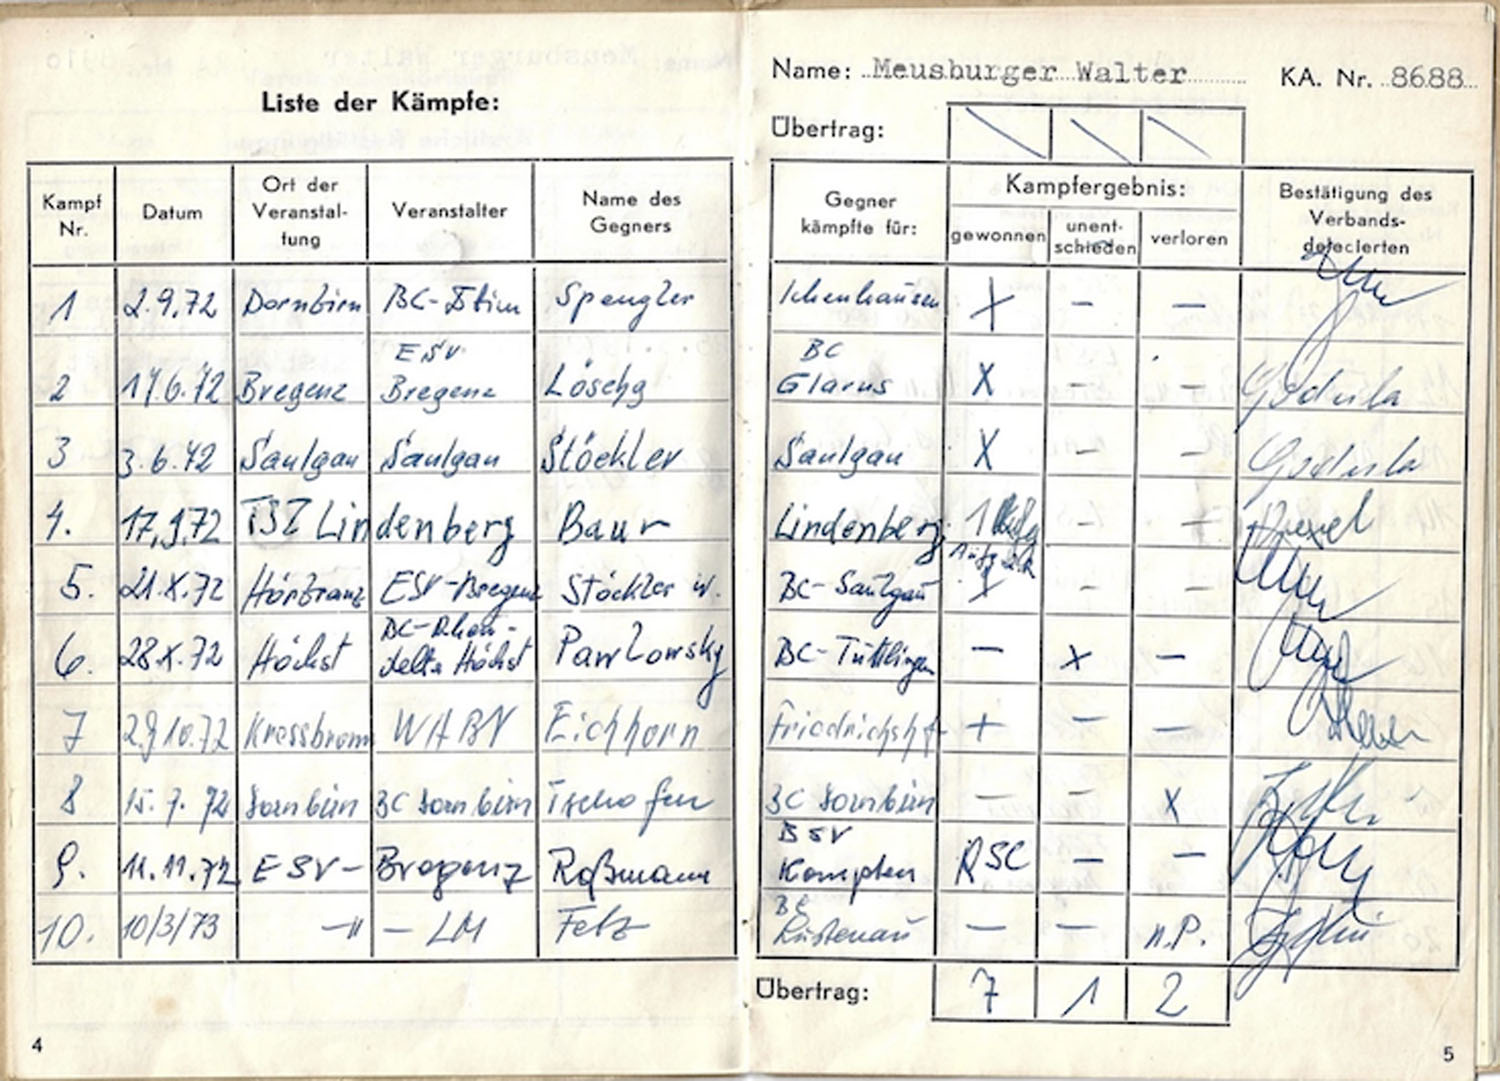 Liste der Kämpfe:
Name: Meusburger Walter KA. Nr. 8688
Übertrag:
Kampf Nr. Datum Ort der Veranstal-tung Veranstalter Name des Gegners Gegner kämpfte für: Kampfergebnis: gewonnen unent-schieden verloren Bestätigung des Verbands-delecierten
1 2.9.72 Dornbirn BC- Spengler Ichenhausen X – –
2 17.6.72 Bregenz ESV Bregenz Löschg BC Glarus X – – Godula
3 3.6.72 Saulgau Saulgau Stöckler Saulgau X – – Godula
4. 17.9.72 TSZ Lindenberg Baur Lindenberg 1 –
5. 21.X.72 Hörbranz ESV-Bregenz Stöckler W. BC-Saulgau X – –
6. 28.X.72 Höchst BC-Rhein-delta Höchst Pawlowsky BC-Tuttlingen – X –
7 29.10.72 Kressbronn WABV Eichhorn Friedrichshf + – –
8 15.7.72 Dornbirn BC Dornbirn Tschofen BC Dornbirn – – X
9. 11.11.72 ESV- Bregenz Roßmann BSV Kempten RSC – –
10. 10/3/73 –"– LM Fetz BC Lustenau – – n.P.
Übertrag: 7 1 2
4
5